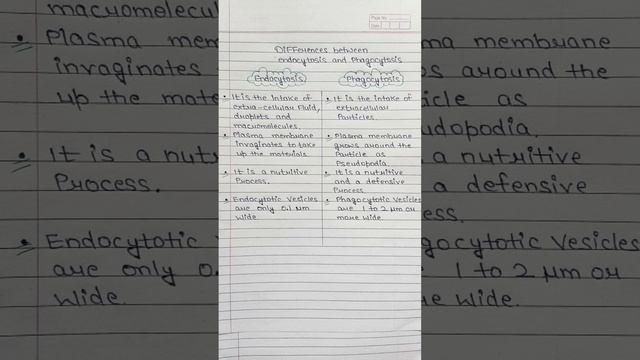 Page No.
Date
Differences between
endocytosis and Phagocytosis
Endocytosis
Phagocytosis
• It is the intake of
extra-cellular Fluid,
droplets and
macromolecules.
• It is the intake of
extracellular
Particles.
• Plasma membrane
invaginates to take
up the materials.
• Plasma membrane
grows around the
Particle as
Pseudopodia.
• It is a nutritive
Process.
• It is a nutritive
and a defensive
Process
• Endocytotic Vesicles
are only 0.1 μm
wide
• Phagocytotic Vesicles
are 1 to 2 μm or
more wide.
macromolecul
• Plasma mem
invaginates
up the mate
• It is a nut
Process.
• Endocytotic
are only 0.
wide.
ma membrane
s around the
icle as
udopodia.
a nutritive
a defensive
ess.
gocytotic Vesicles
1 to 2 μm or
e wide.